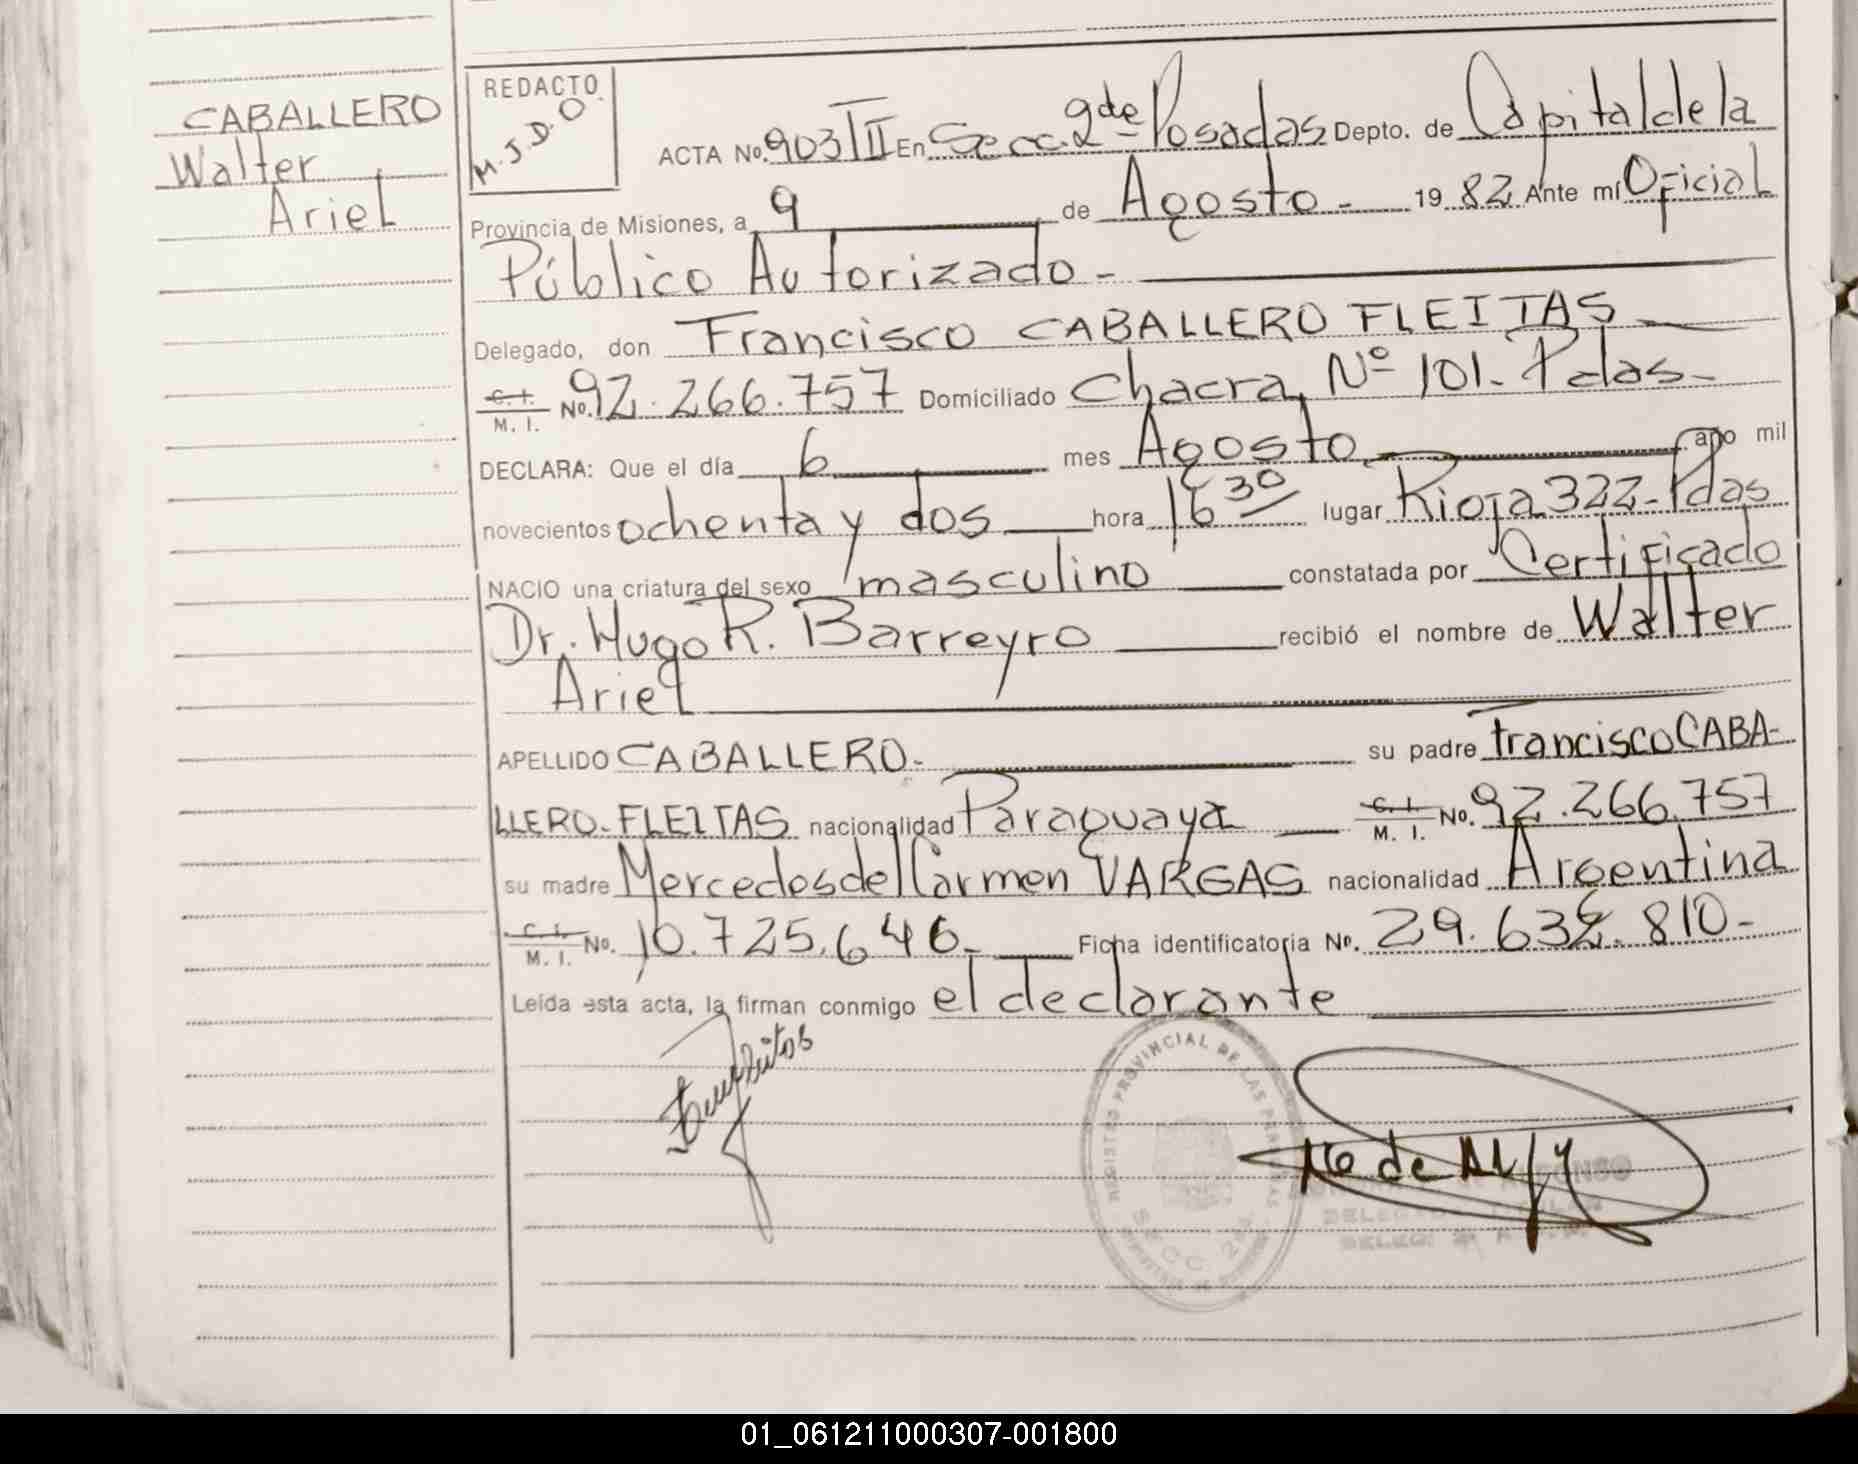 CABALLERO
Walter
Ariel
REDACTO
M.J.D.O.
ACTA No. 903 TII En Secc. 2da de Posadas Depto. de Capital de la
Provincia de Misiones, a 9 de Agosto - 1982 Ante mí Oficial
Público Autorizado -
Delegado, don Francisco CABALLERO FLEITAS
C. I. M. I. No. 92.266.757 Domiciliado Chacra Nº 101. Pdas-
DECLARA: Que el día 6 mes Agosto año mil
novecientos ochenta y dos hora 16 30 lugar Rioja 322-Pdas
NACIO una criatura del sexo masculino constatada por Certificado
Dr. Hugo R. Barreyro recibió el nombre de Walter
Ariel
APELLIDO CABALLERO.- su padre Francisco CABA-
LLERO-FLEITAS nacionalidad Paraguaya C. I. M. I. No. 92.266.757
su madre Mercedes del Carmen VARGAS nacionalidad Argentina
C. I. M. I. No. 10.725.646- Ficha identificatoria No. 29.632.810-
Leída esta acta, la firman conmigo el declarante
REGISTRO PROVINCIAL DE LAS PERSONAS
SECC. 2da
01_061211000307-001800